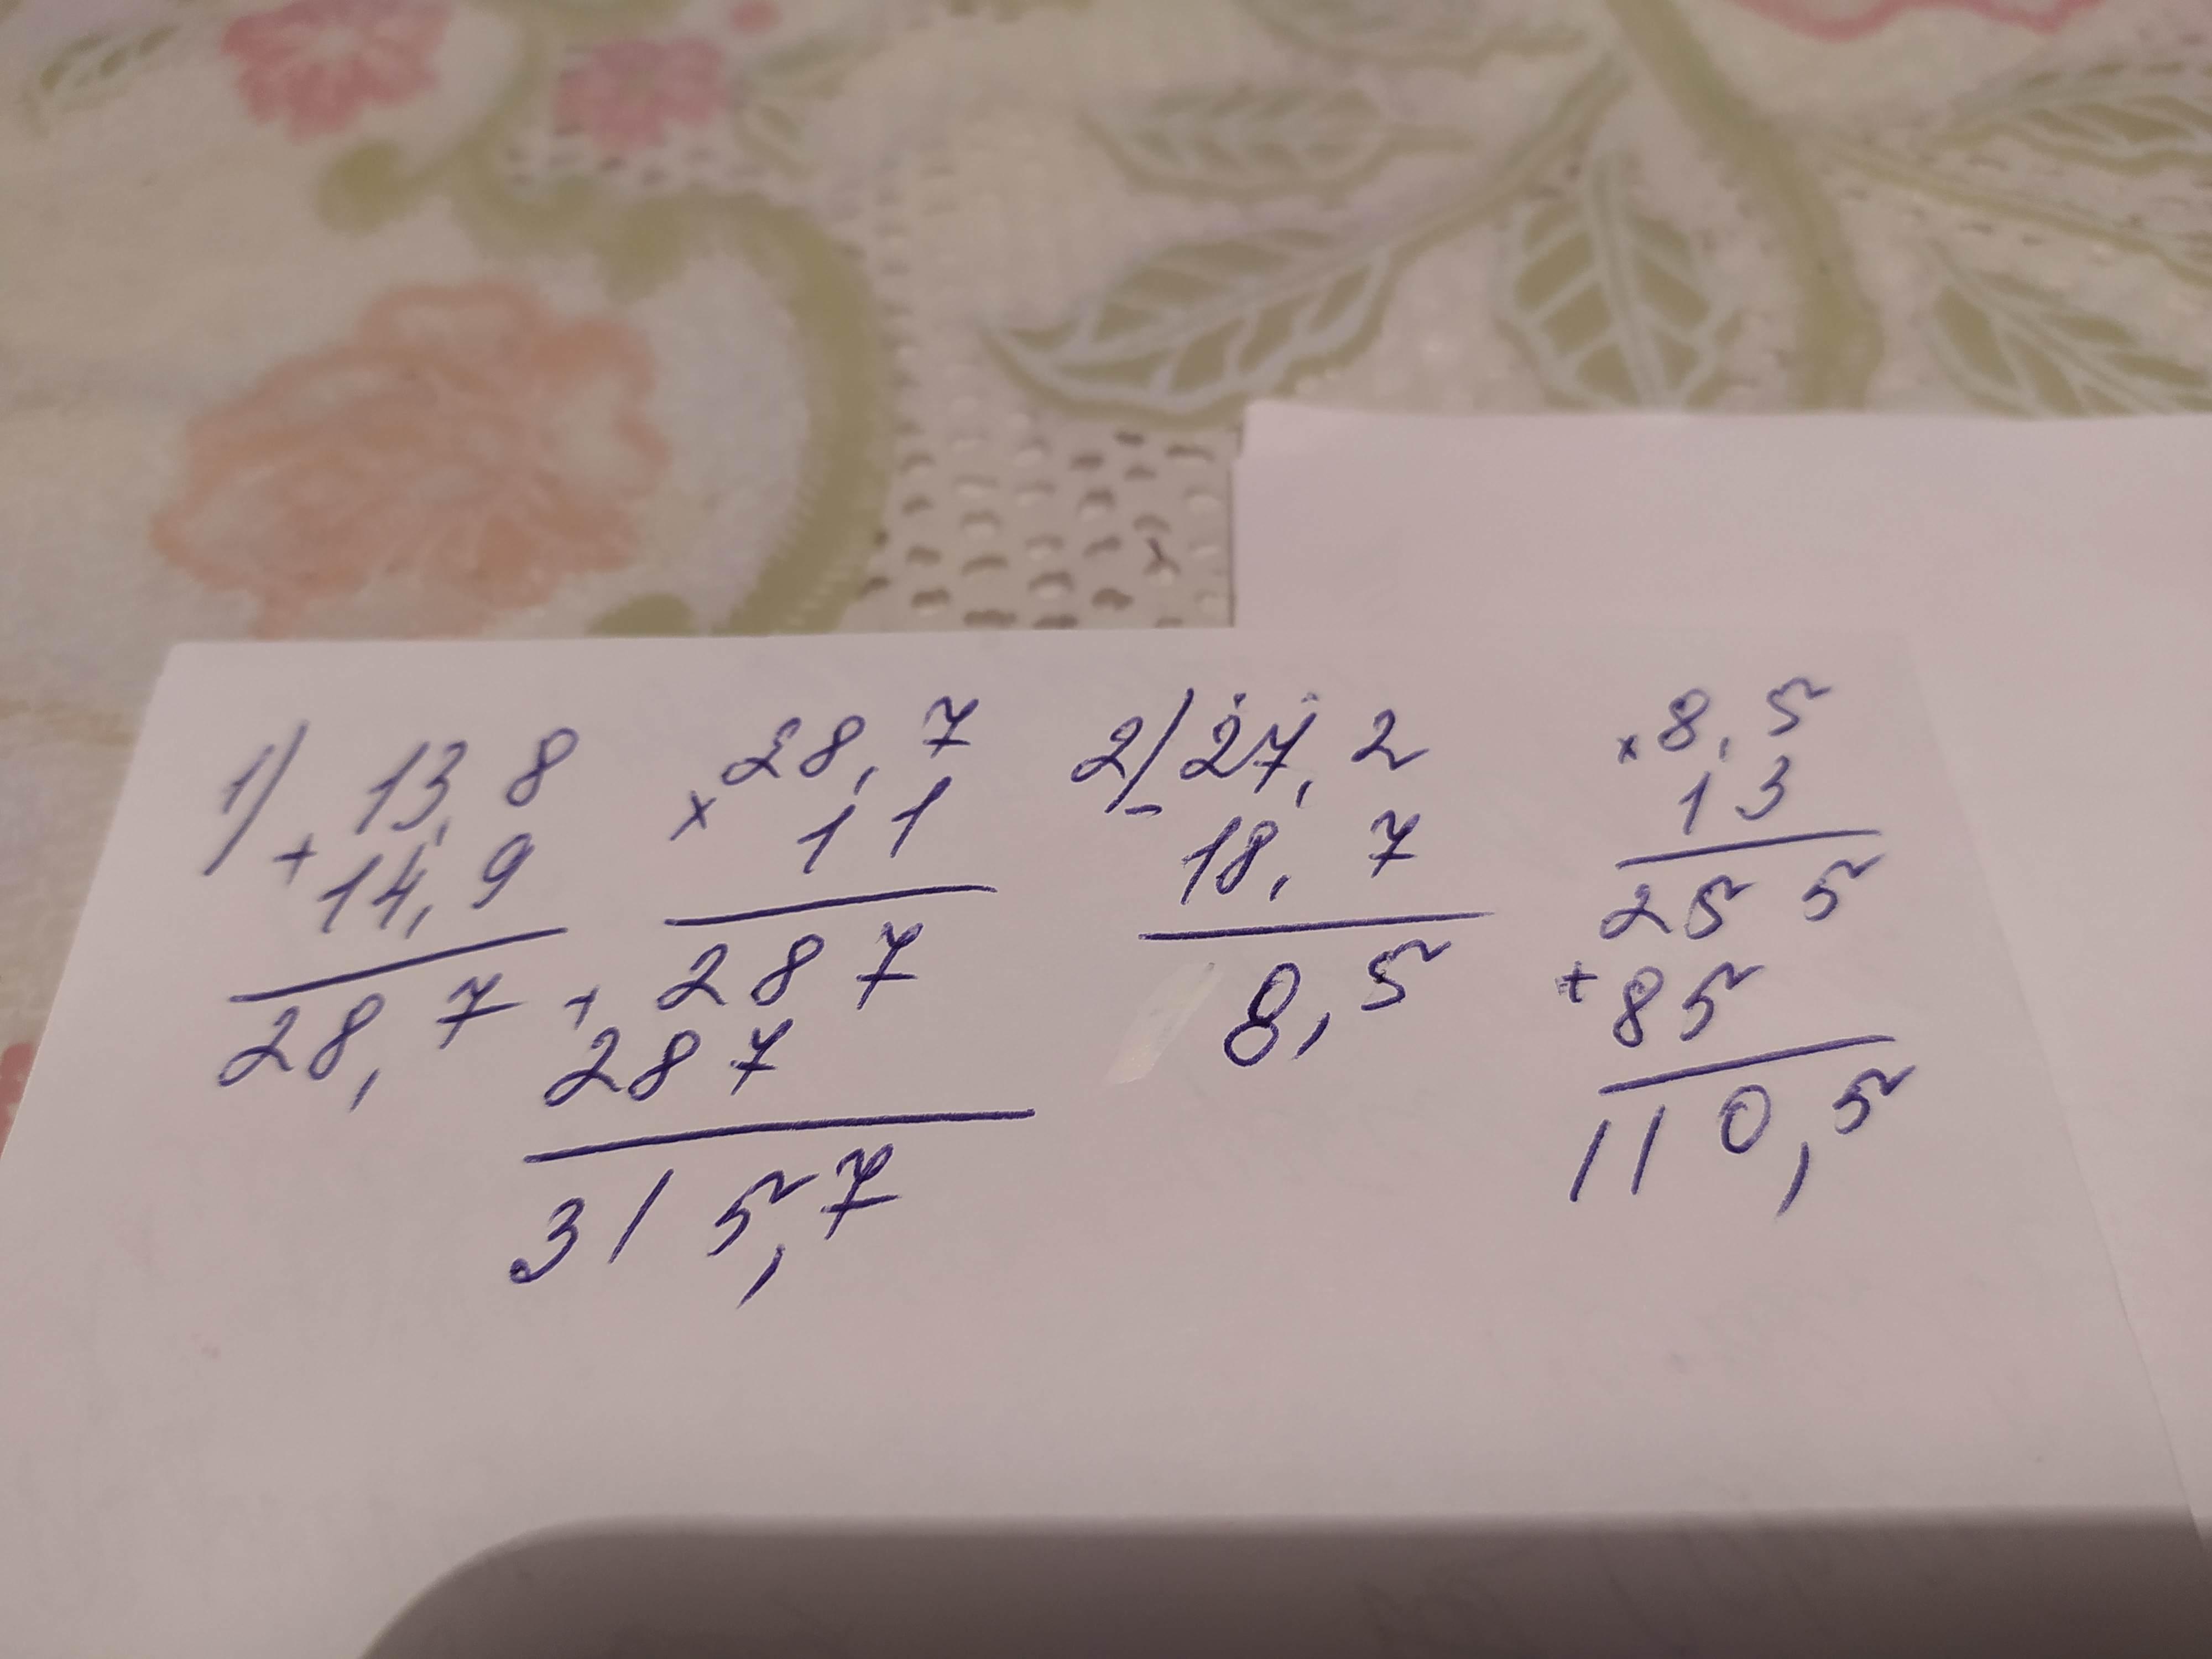 1) 13,8
+ 14,9
28,7
× 28,7
11
287
+ 287
315,7
2) 27,2
- 18,7
8,5
× 8,5
13
255
+ 85
110,5